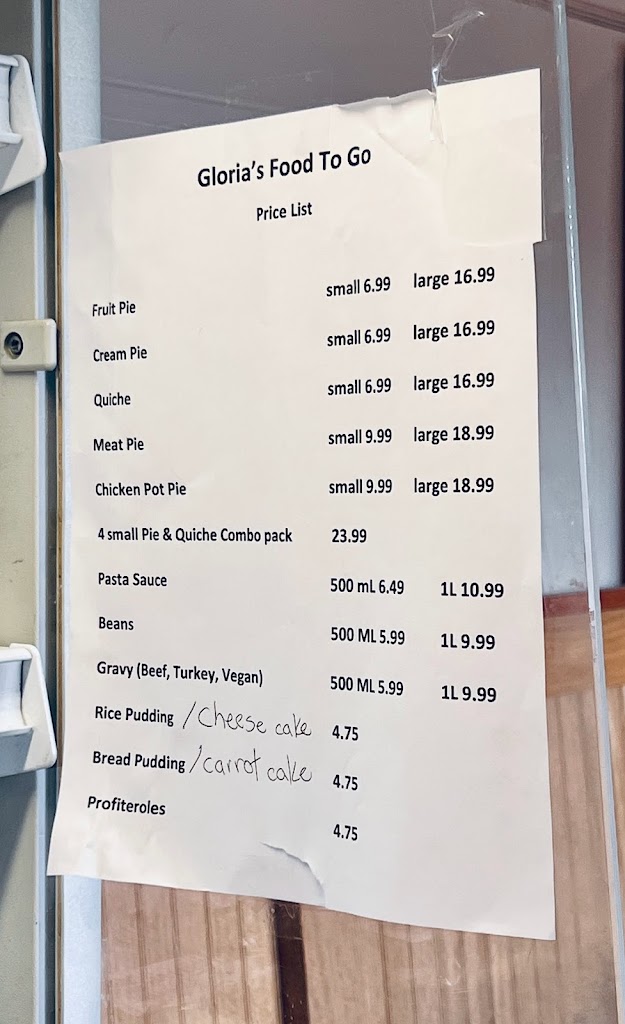 Gloria's Food To Go
Price List
Fruit Pie small 6.99 large 16.99
Cream Pie small 6.99 large 16.99
Quiche small 6.99 large 16.99
Meat Pie small 9.99 large 18.99
Chicken Pot Pie small 9.99 large 18.99
4 small Pie & Quiche Combo pack 23.99
Pasta Sauce 500 mL 6.49 1L 10.99
Beans 500 ML 5.99 1L 9.99
Gravy (Beef, Turkey, Vegan) 500 ML 5.99 1L 9.99
Rice Pudding /Cheese cake 4.75
Bread Pudding /carrot cake 4.75
Profiteroles 4.75